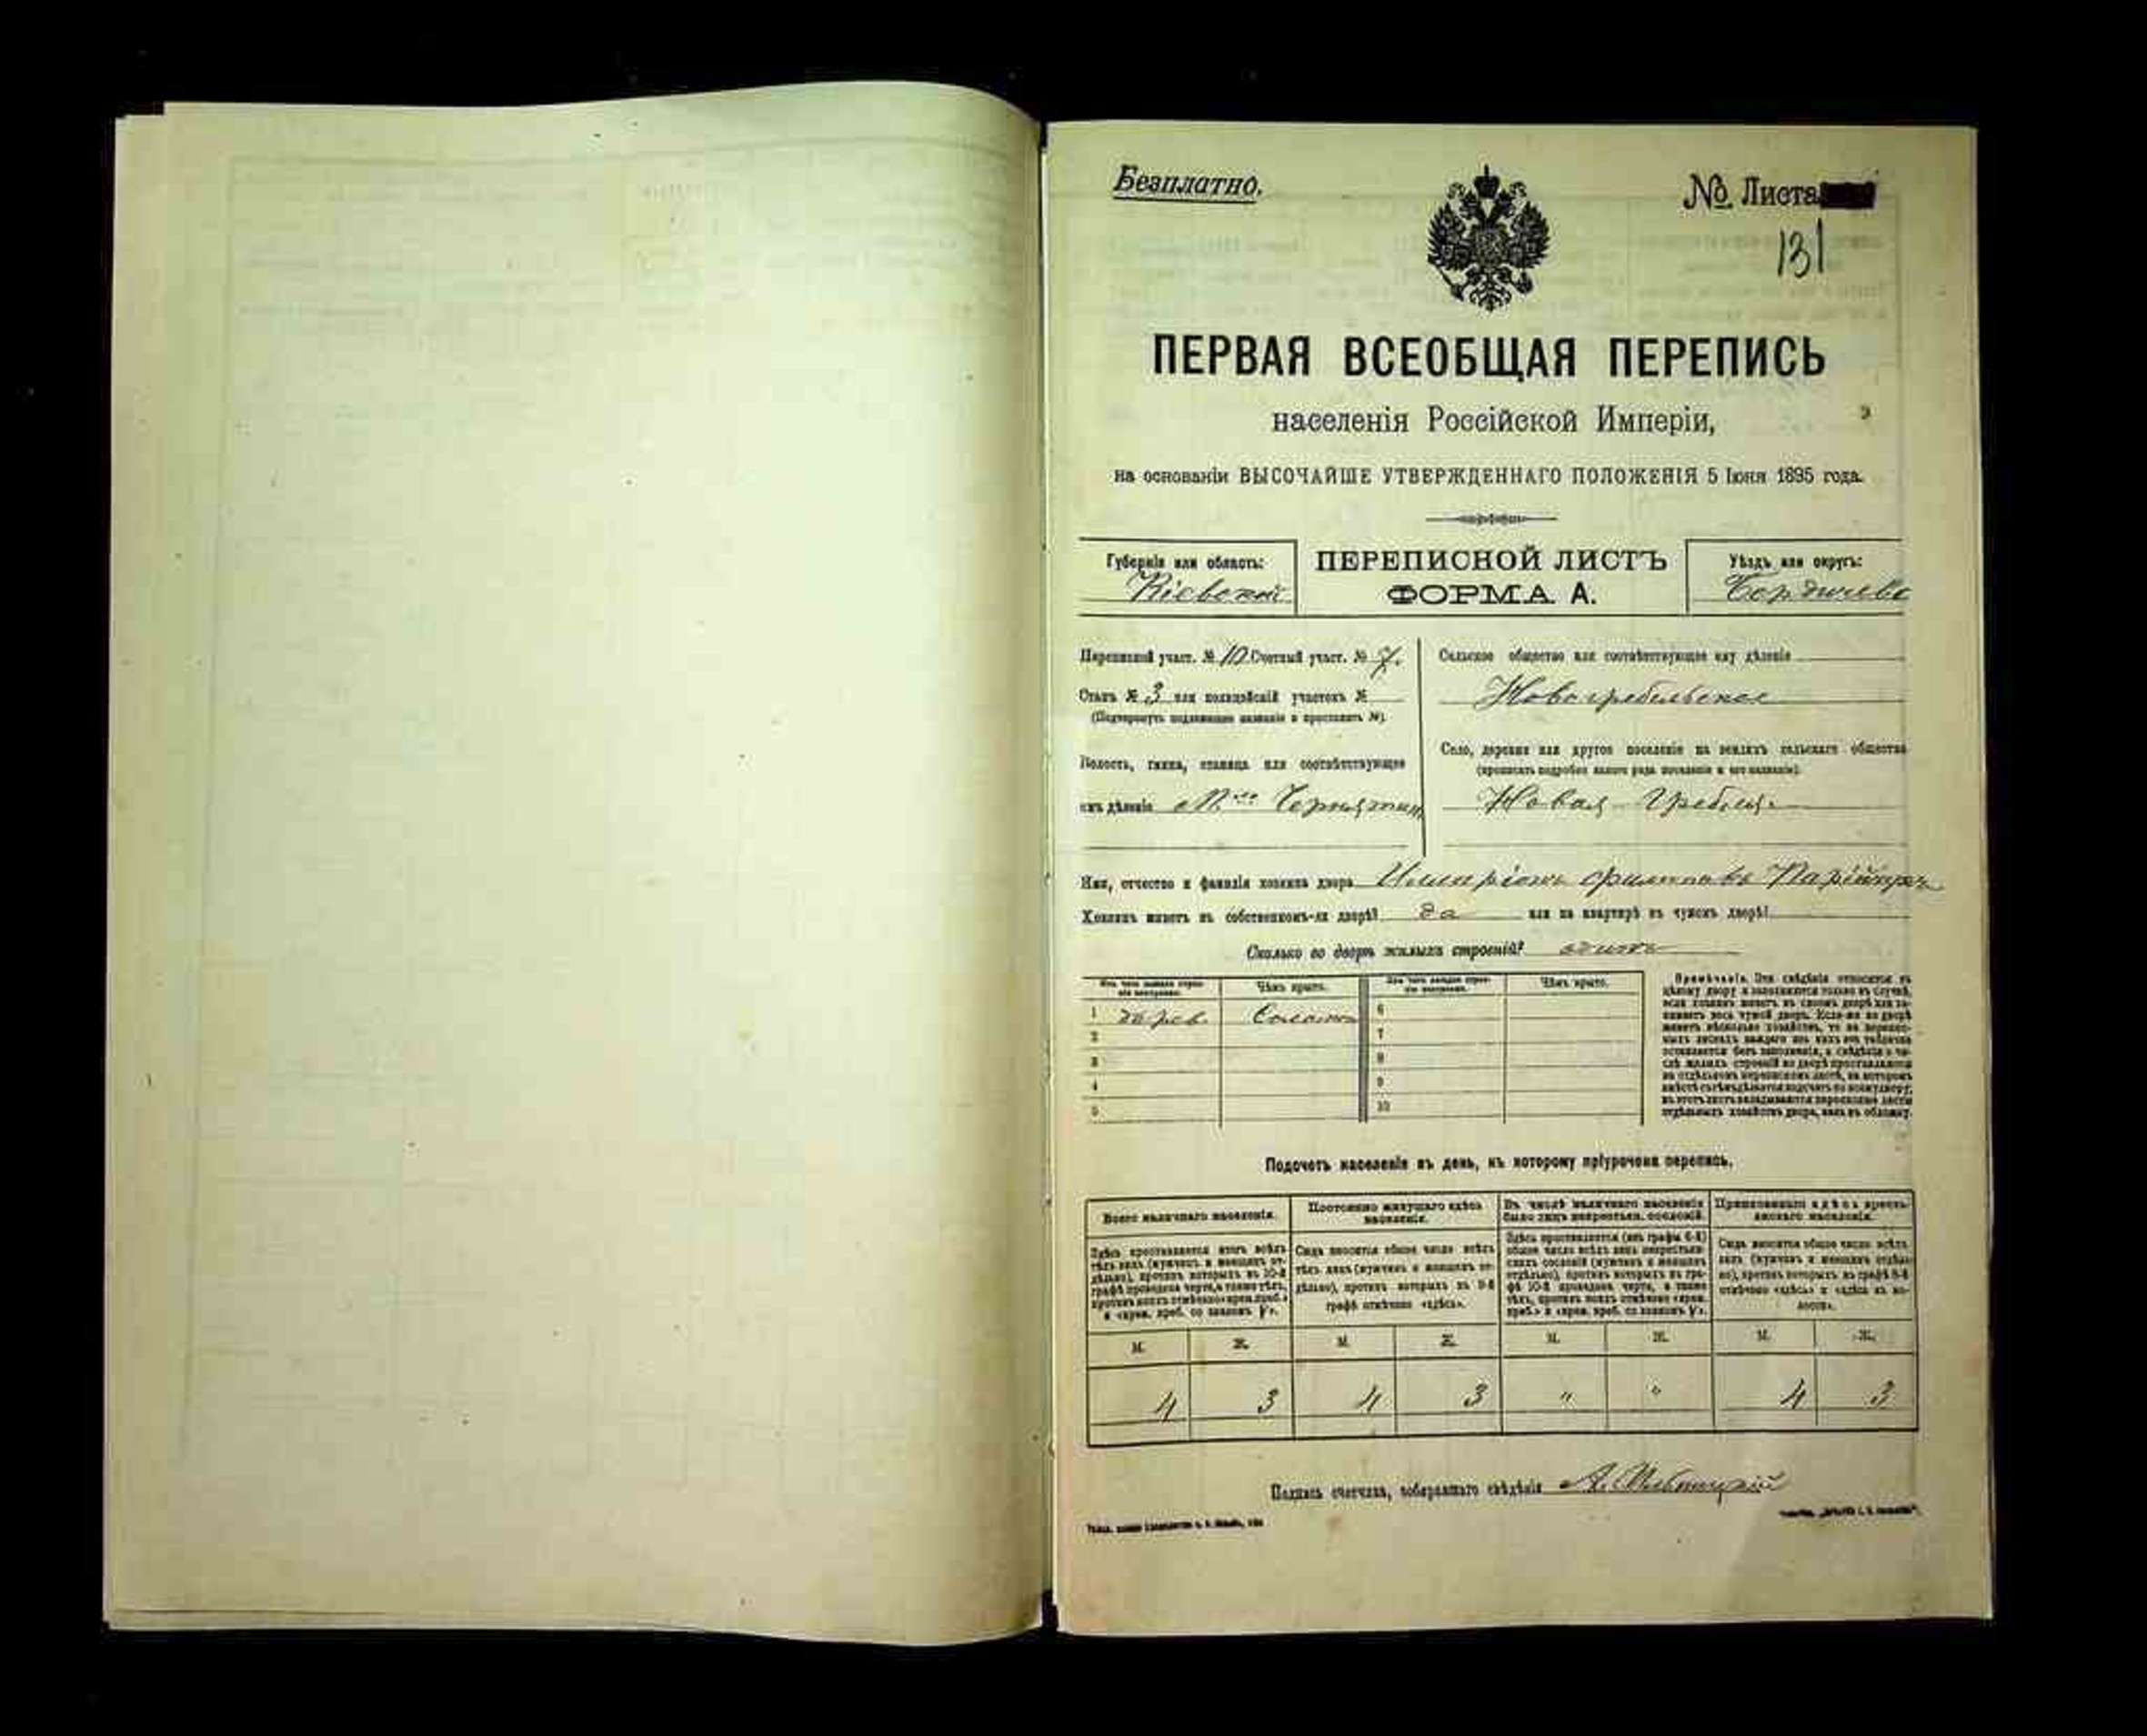 Безплатно.
№ Листа
131
ПЕРВАЯ ВСЕОБЩАЯ ПЕРЕПИСЬ
населенія Россійской Имперіи,
на основаніи ВЫСОЧАЙШЕ УТВЕРЖДЕННАГО ПОЛОЖЕНІЯ 5 Іюня 1895 года.
Губернія или область:
Кіевской
ПЕРЕПИСНОЙ ЛИСТЪ
ФОРМА А.
Уѣздъ или округъ:
Бердичевс
Переписной участ. № 10 Счетный участ. № 7.
Станъ № 3 или полицейскій участокъ №
(Подчеркнуть подлежащее названіе и проставить №).
Волость, гмина, станица или соотвѣтствующее
имъ дѣленіе М-ко Чернятин
Сельское общество или соотвѣтствующее ему дѣленіе
Новогребельское
Село, деревня или другое поселеніе на земляхъ сельскаго общества
(прописать подробно какого рода поселеніе и его названіе).
Новая Гребля
Имя, отчество и фамилія хозяина двора Филиповъ
Хозяинъ живетъ въ собственномъ-ли дворѣ? да или на квартирѣ въ чужомъ дворѣ?
Сколько во дворѣ жилыхъ строеній? одинъ
Изъ чего каждое строеніе построено. Чѣмъ крыто. Изъ чего каждое строеніе построено. Чѣмъ крыто.
1 дерев. Солом 6
2 7
3 8
4 9
5 10
Примѣчаніе. Эти свѣдѣнія относятся къ
цѣлому двору и заполняются только въ случаѣ,
если хозяинъ живетъ въ своемъ дворѣ или за-
нимаетъ весь чужой дворъ. Если-же во дворѣ
живетъ нѣсколько хозяйствъ, то на перепис-
ныхъ листахъ каждаго изъ нихъ эта табличка
оставляется безъ заполненія, а свѣдѣнія о чи-
слѣ жилыхъ строеній во дворѣ проставляются
на отдѣльномъ переписномъ листѣ, на которомъ
вмѣстѣ съ тѣмъ дѣлается подсчетъ по всему двору;
въ этотъ листъ вкладываются переписные листы
отдѣльныхъ хозяйствъ двора, какъ въ обложку.
Подсчетъ населенія въ день, къ которому пріурочена перепись.
Всего наличнаго населенія.
Здѣсь проставляется итогъ всѣхъ
тѣхъ лицъ (мужчинъ и женщинъ от-
дѣльно), противъ которыхъ въ 10-й
графѣ проведена черта, а также тѣхъ,
противъ коихъ отмѣчено «врем. преб.»
и «врем. преб. со знакомъ V».
Постоянно живущаго здѣсь
населенія.
Сюда вносится общее число всѣхъ
тѣхъ лицъ (мужчинъ и женщинъ от-
дѣльно), противъ которыхъ въ 9-й
графѣ отмѣчено «здѣсь».
Въ числѣ наличнаго населенія
было лицъ некрестьян. сословій.
Здѣсь проставляется (изъ графы 6-й)
общее число всѣхъ лицъ некрестьян-
скихъ сословій (мужчинъ и женщинъ
отдѣльно), противъ которыхъ въ гра-
фѣ 10-й проведена черта, а также
тѣхъ, противъ коихъ отмѣчено «врем.
преб.» и «врем. преб. со знакомъ V».
Приписаннаго здѣсь кресть-
янскаго населенія.
Сюда вносится общее число всѣхъ
лицъ (мужчинъ и женщинъ отдѣль-
но), противъ которыхъ въ графѣ 8-й
отмѣчено «здѣсь» и «здѣсь въ во-
лости».
М. Ж. М. Ж. М. Ж. М. Ж.
4 3 4 3 " " 4 3
Подпись счетчика, собиравшаго свѣдѣнія